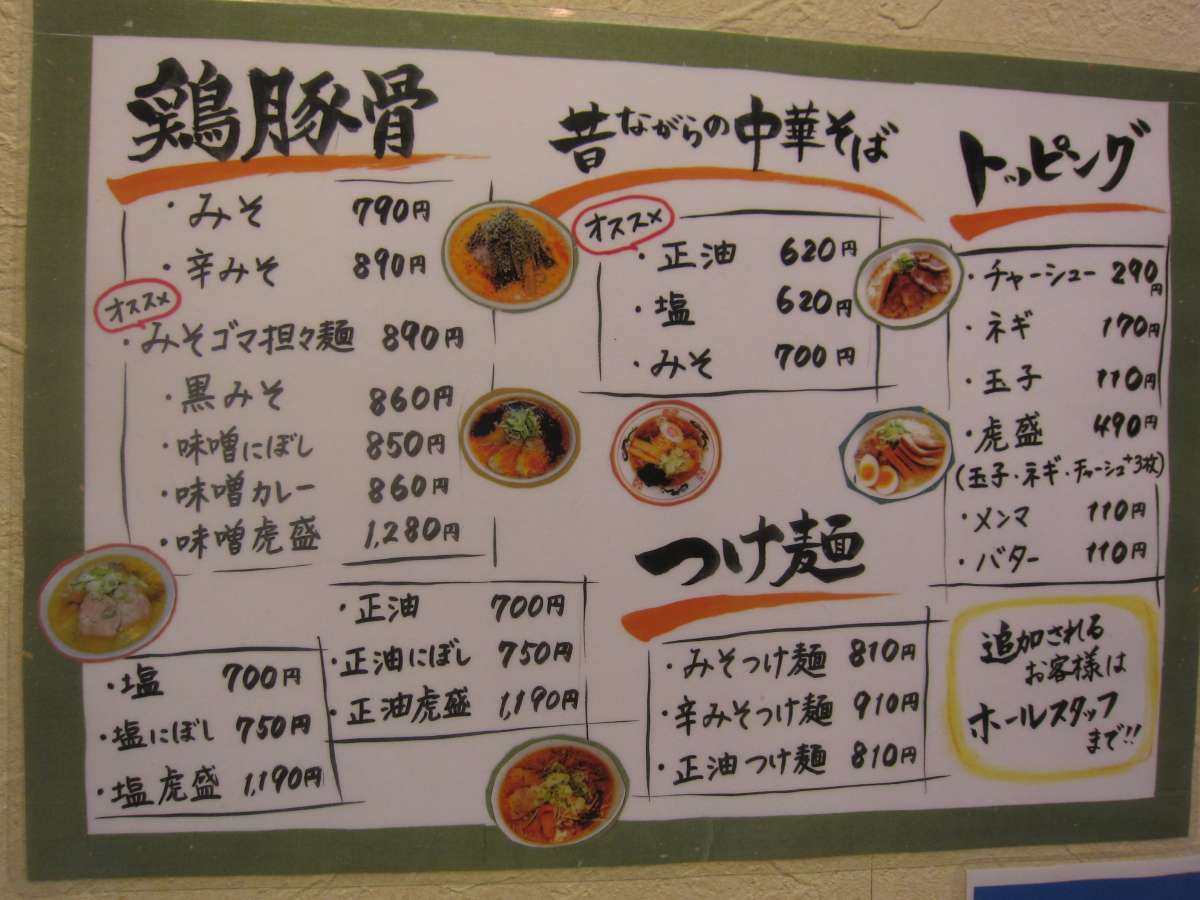 鶏豚骨
・みそ 790円
・辛みそ 890円
オススメ
・みそゴマ担々麺 890円
・黒みそ 860円
・味噌にぼし 850円
・味噌カレー 860円
・味噌虎盛 1,280円
・塩 700円
・塩にぼし 750円
・塩虎盛 1,190円
・正油 700円
・正油にぼし 750円
・正油虎盛 1,190円
昔ながらの中華そば
オススメ
・正油 620円
・塩 620円
・みそ 700円
つけ麺
・みそつけ麺 810円
・辛みそつけ麺 910円
・正油つけ麺 810円
トッピング
・チャーシュー 290円
・ネギ 170円
・玉子 110円
・虎盛 490円
(玉子・ネギ・チャーシュー+3枚)
・メンマ 110円
・バター 110円
追加される
お客様は
ホールスタッフ
まで!!